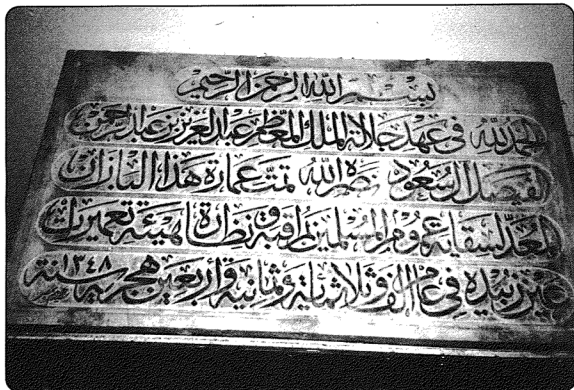 بسم الله الرحمن الرحيم
الحمد لله في عهد جلالة الملك المعظم عبد العزيز بن عبد الرحمن
الفيصل السعود نصره الله تمت عمارة هذا البازان
المعد لسقاية عموم المسلمين بمراقبة ونظارة هيئة تعميرات
عين زبيدة في عام ألف وثلاثمائة وثمانية وأربعين هجرية سنة ١٣٤٨